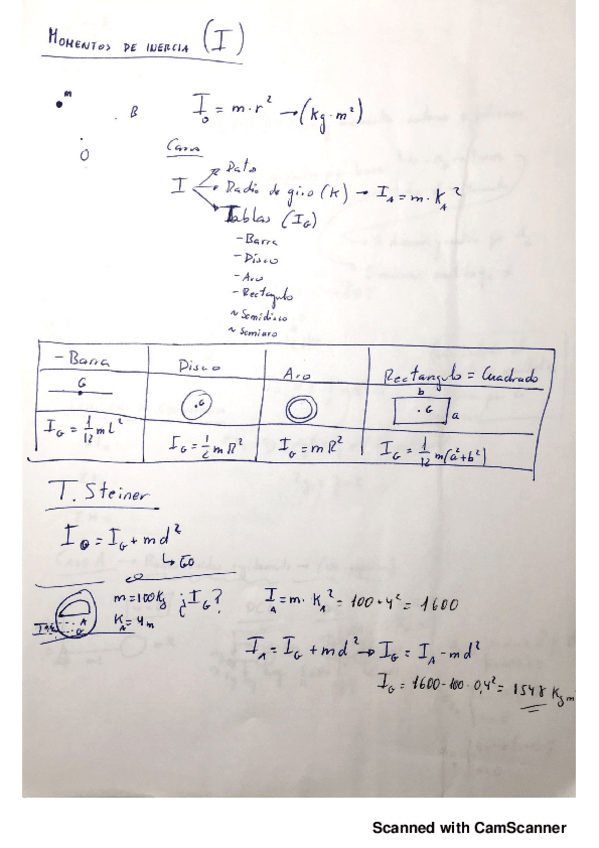 MOMENTOS DE INERCIA (I)
m
B
I₀ = m·r² → (Kg·m²)
O
Casos
Dato
I
Radio de giro (K) → I_A = m·K_A²
Tablas (I_G)
- Barra
- Disco
- Aro
- Rectangulo
~ Semidisco
~ Semiaro
- Barra Disco Aro Rectangulo = Cuadrado
G .G b .G a
I_G = 1/12 mL² I_G = 1/2 m R² I_G = m R² I_G = 1/12 m(a²+b²)
T. Steiner
I₀ = I_G + md²
↳ GO
m = 100 Kg ¿I_G? I_A = m·K_A² = 100·4² = 1600
K_A = 4m
A
G
I_A = I_G + md² → I_G = I_A - md²
I_G = 1600 - 100·0,4² = 1548 Kg m
Scanned with CamScanner